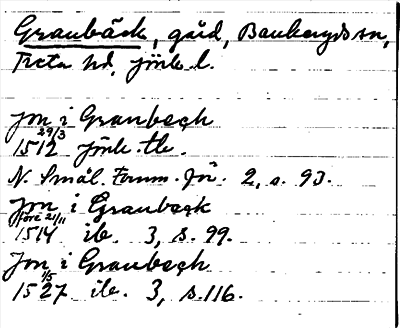 Graubäck, gård, Bankeryds sn,
Tveta hd, Jönk. l.
Jon i Graubech
29/3
1512 Jönk. tb.
N. Smål. Fornm. För. 2, s. 93.
Jon i Graubeck
före 21/11
1514 ib. 3, s. 99.
Jon i Graubech
1/5
1527 ib. 3, s. 116.